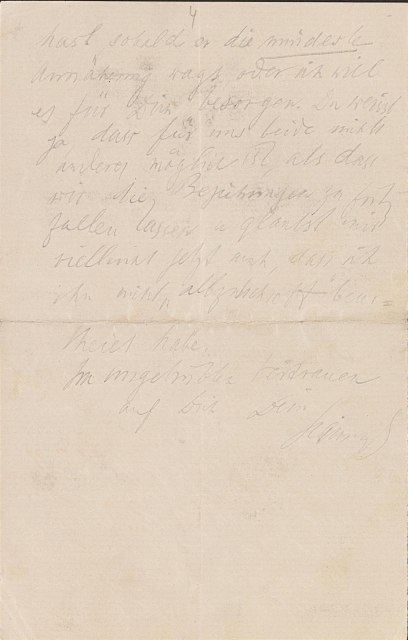 4
hast sobald er die mindeste
Annäherung wagt oder ich will
es für Dich besorgen. Du weisst
ja dass für uns beide nichts
anderes möglich ist, als dass
wir die Beziehungen zu Fritz
fallen lassen u glaubst mir
vielleicht jetzt auch, dass ich
ihn nicht allzuschroff beur=
theilt habe.
Im ungetrübten Vertrauen
auf Dich Dein